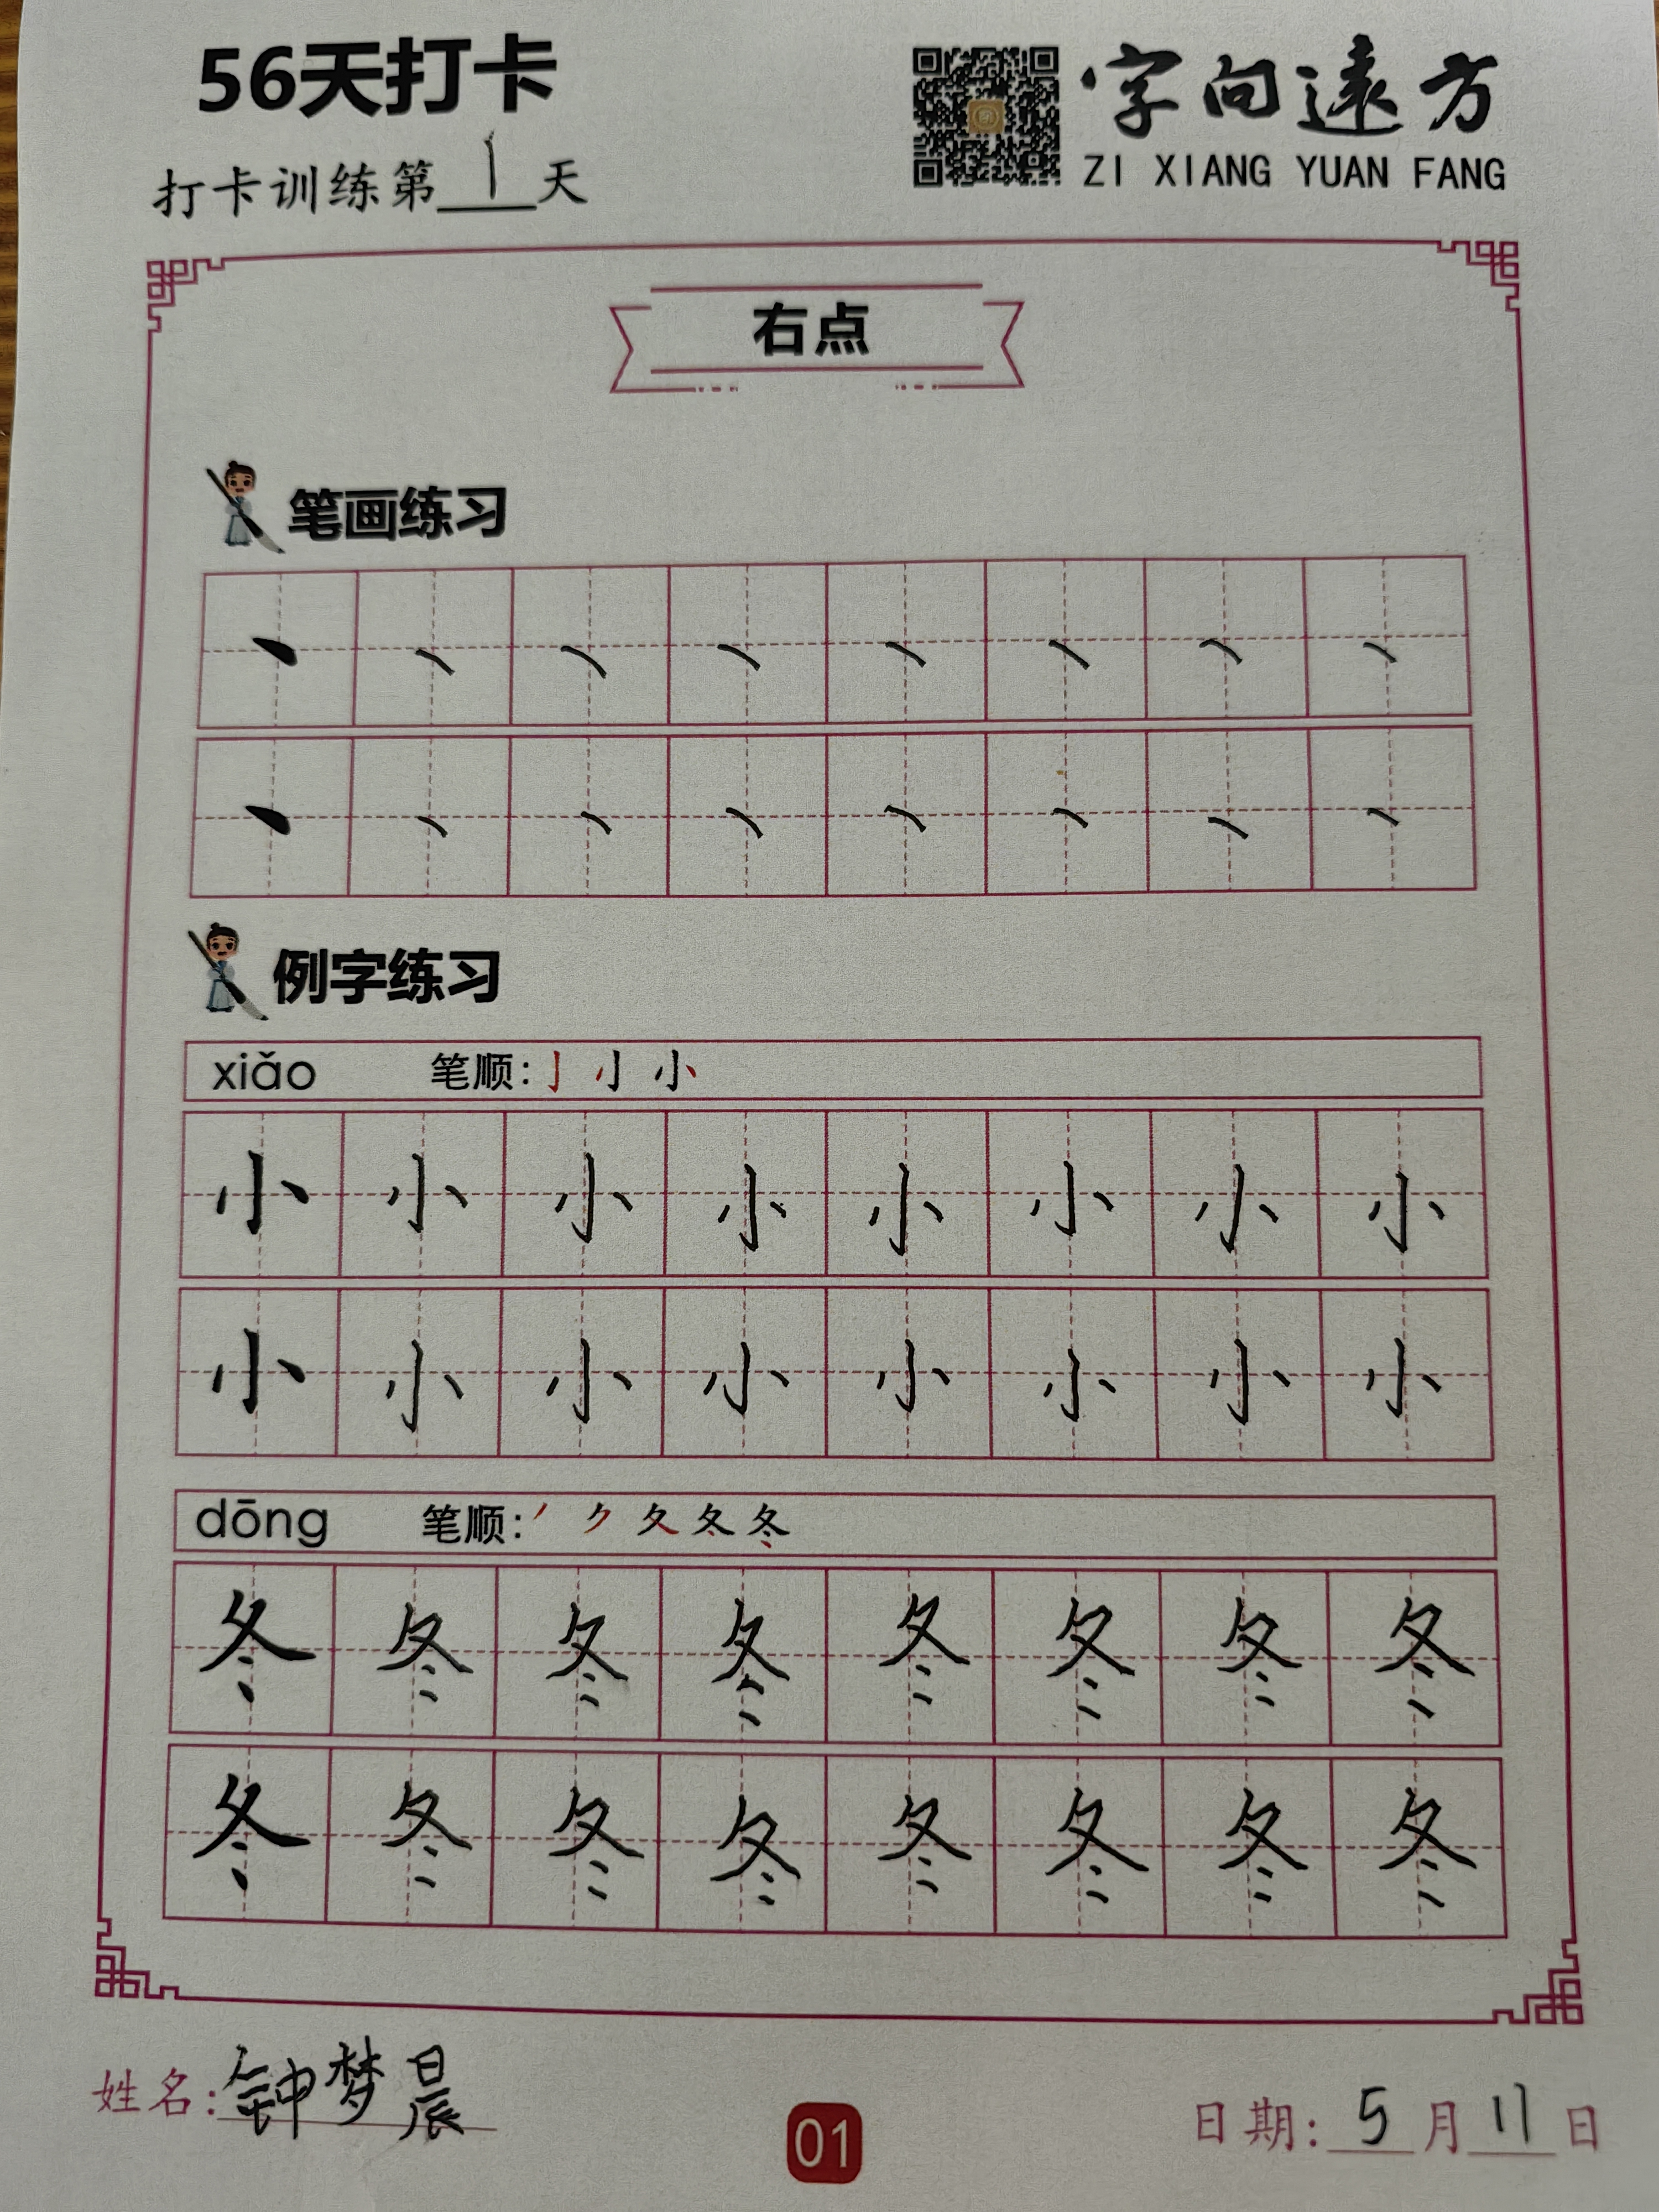 56天打卡
字向遠方
ZI XIANG YUAN FANG
打卡训练第1天
右点
笔画练习
丶 丶 丶 丶 丶 丶 丶 丶
丶 丶 丶 丶 丶 丶 丶 丶
例字练习
xiǎo 笔顺: 亅 小 小
小 小 小 小 小 小 小 小
小 小 小 小 小 小 小 小
dōng 笔顺: 丿 ク 夂 冬 冬
冬 冬 冬 冬 冬 冬 冬 冬
冬 冬 冬 冬 冬 冬 冬 冬
姓名: 钟梦晨
01
日期: 5月11日